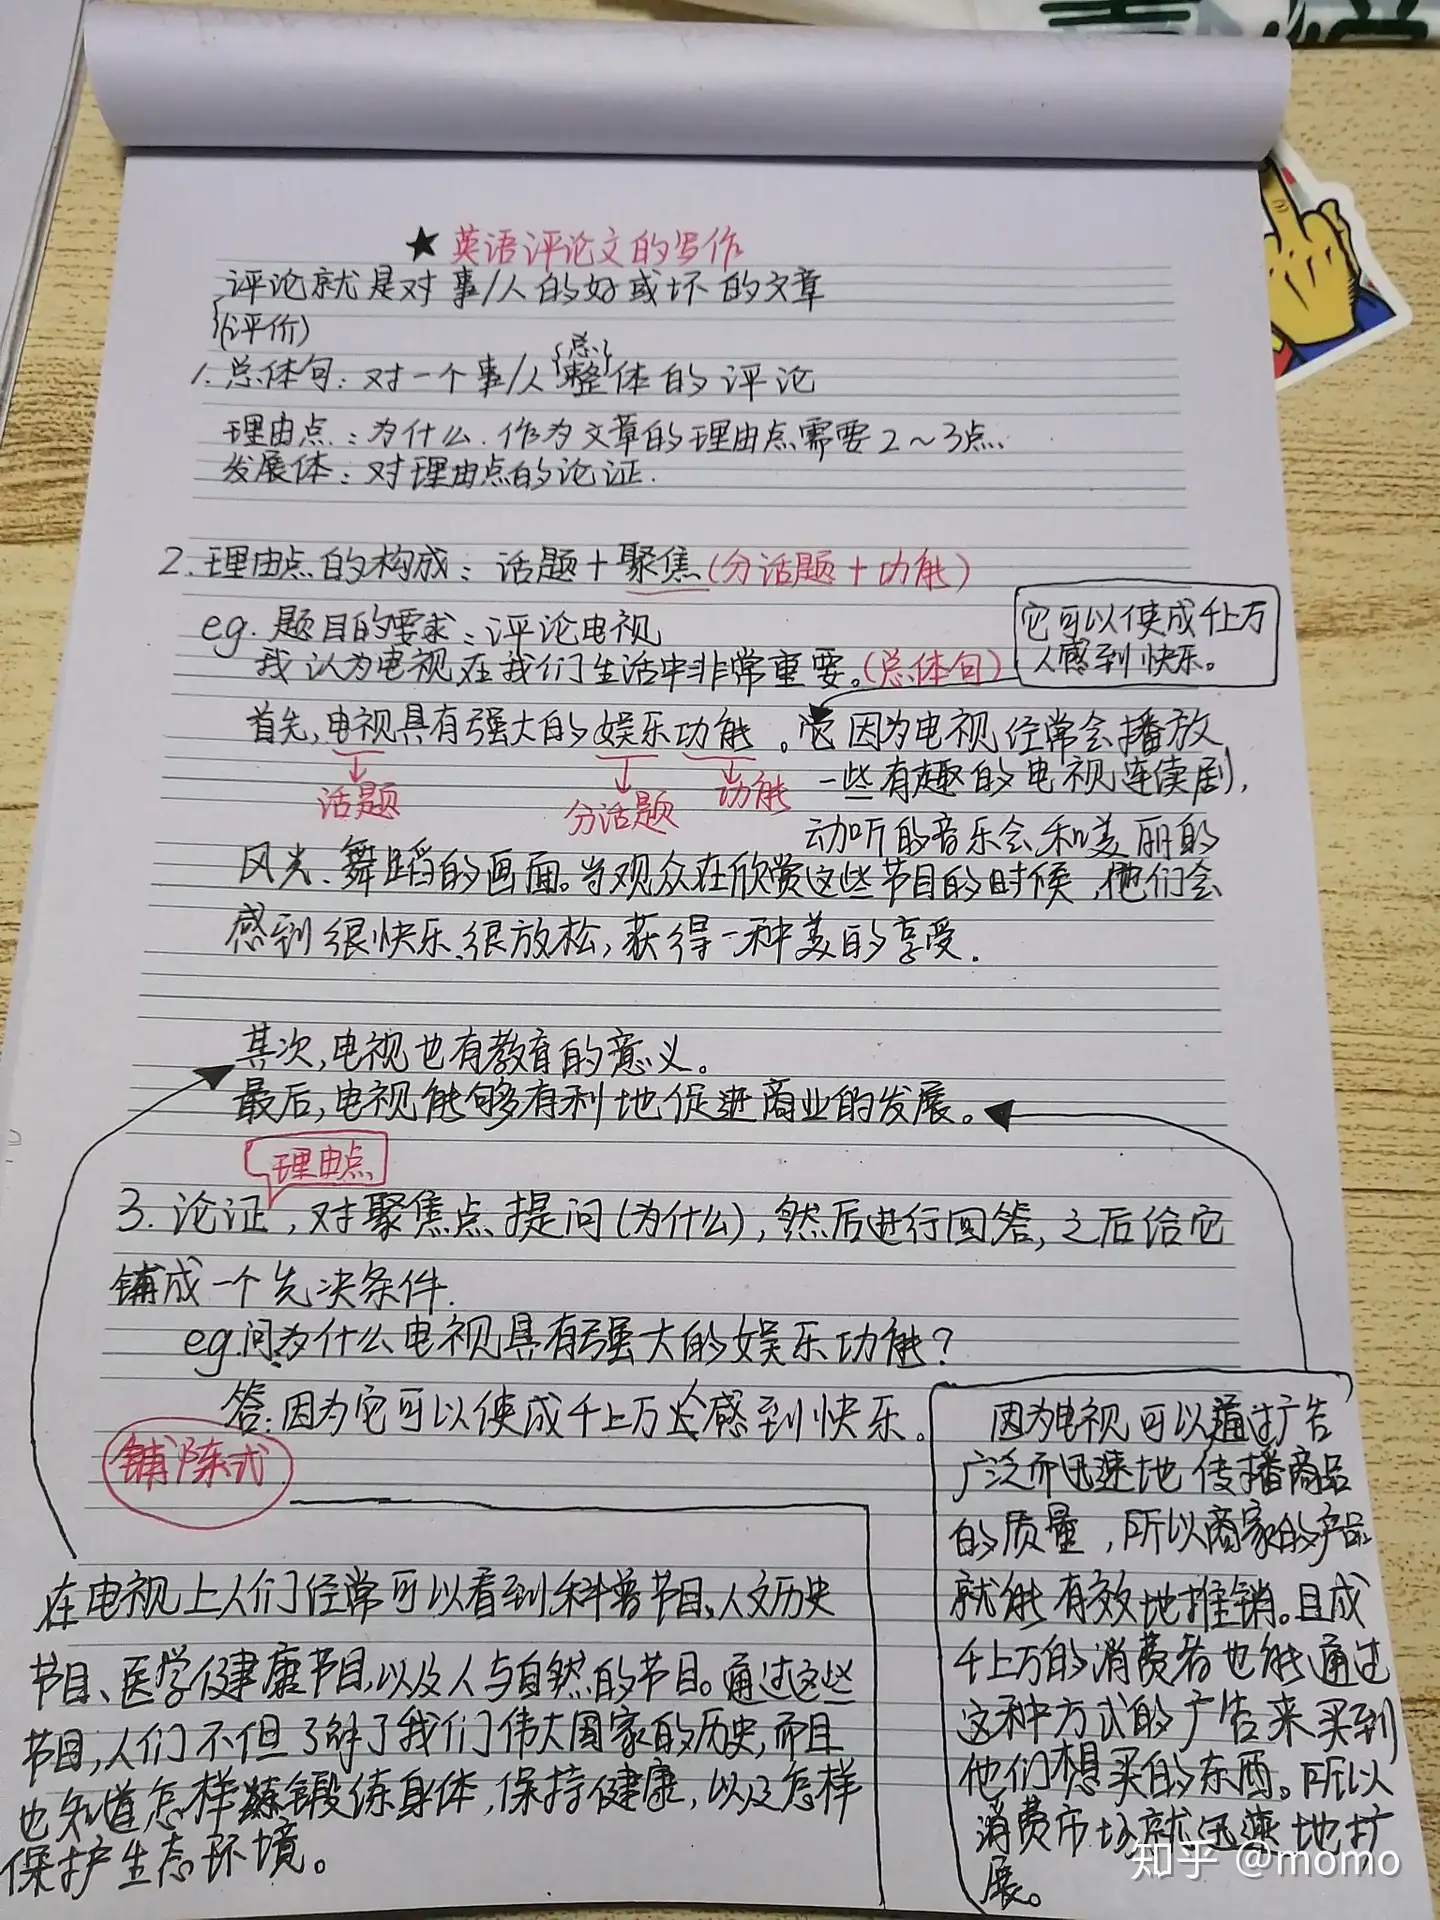 ★英语评论文的写作
评论就是对事/人的好或坏的文章
(评价)
{总}
1.总体句：对一个事/人整体的评论
理由点：为什么.作为文章的理由点需要2~3点.
发展体：对理由点的论证.
2.理由点的构成：话题+聚焦(分话题+功能)
eg.题目的要求：评论电视
我认为电视在我们生活中非常重要。(总体句)
它可以使成千上万
人感到快乐。
首先,电视具有强大的娱乐功能。因为电视经常会播放
话题
分话题
功能
一些有趣的电视连续剧,
动听的音乐会和美丽的
风光、舞蹈的画面。当观众在欣赏这些节目的时候,他们会
感到很快乐、很放松,获得一种美的享受.
其次,电视也有教育的意义。
最后,电视能够有利地促进商业的发展。
理由点
3.论证,对聚焦点提问(为什么),然后进行回答,之后给它
铺成一个先决条件.
eg.问:为什么电视具有强大的娱乐功能?
答:因为它可以使成千上万人感到快乐。
铺陈式
在电视上人们经常可以看到科普节目,人文历史
节目、医学健康节目,以及人与自然的节目。通过这些
节目,人们不但了解了我们伟大国家的历史,而且
也知道怎样锻练身体,保持健康,以及怎样
保护生态环境。
因为电视可以通过广告
广泛而迅速地传播商品
的质量,所以商家的产品
就能有效地推销。且成
千上万的消费者也能通过
这种方式的广告来买到
他们想买的东西。所以
消费市场就迅速地扩
展。
知乎 @momo